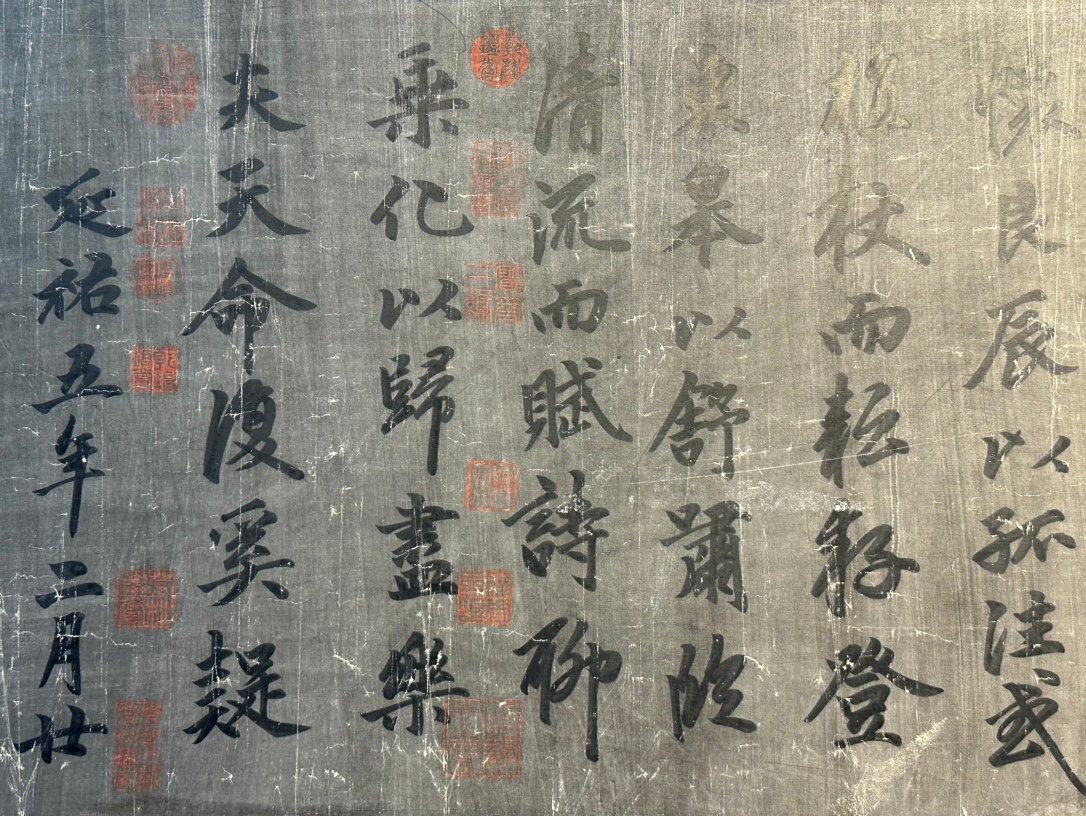 懷良辰以孤往或
植杖而耘耔登
東皋以舒嘯臨
清流而賦詩聊
乘化以歸盡樂
夫天命復奚疑
延祐五年二月廿